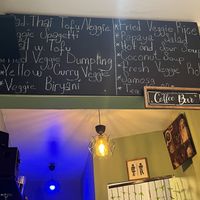 Pad Thai Tofu/Veggie
Veggie Spagetti
w. Tofu
Fried Veggie Dumpling
Yellow Curry Veggie
Veggie Biryani
Fried Veggie Rice
Papaya Salad
Hot and Sour Soup
Coconut Soup
Fresh Veggie Ro
Samosa
Tea
Coffee Bar